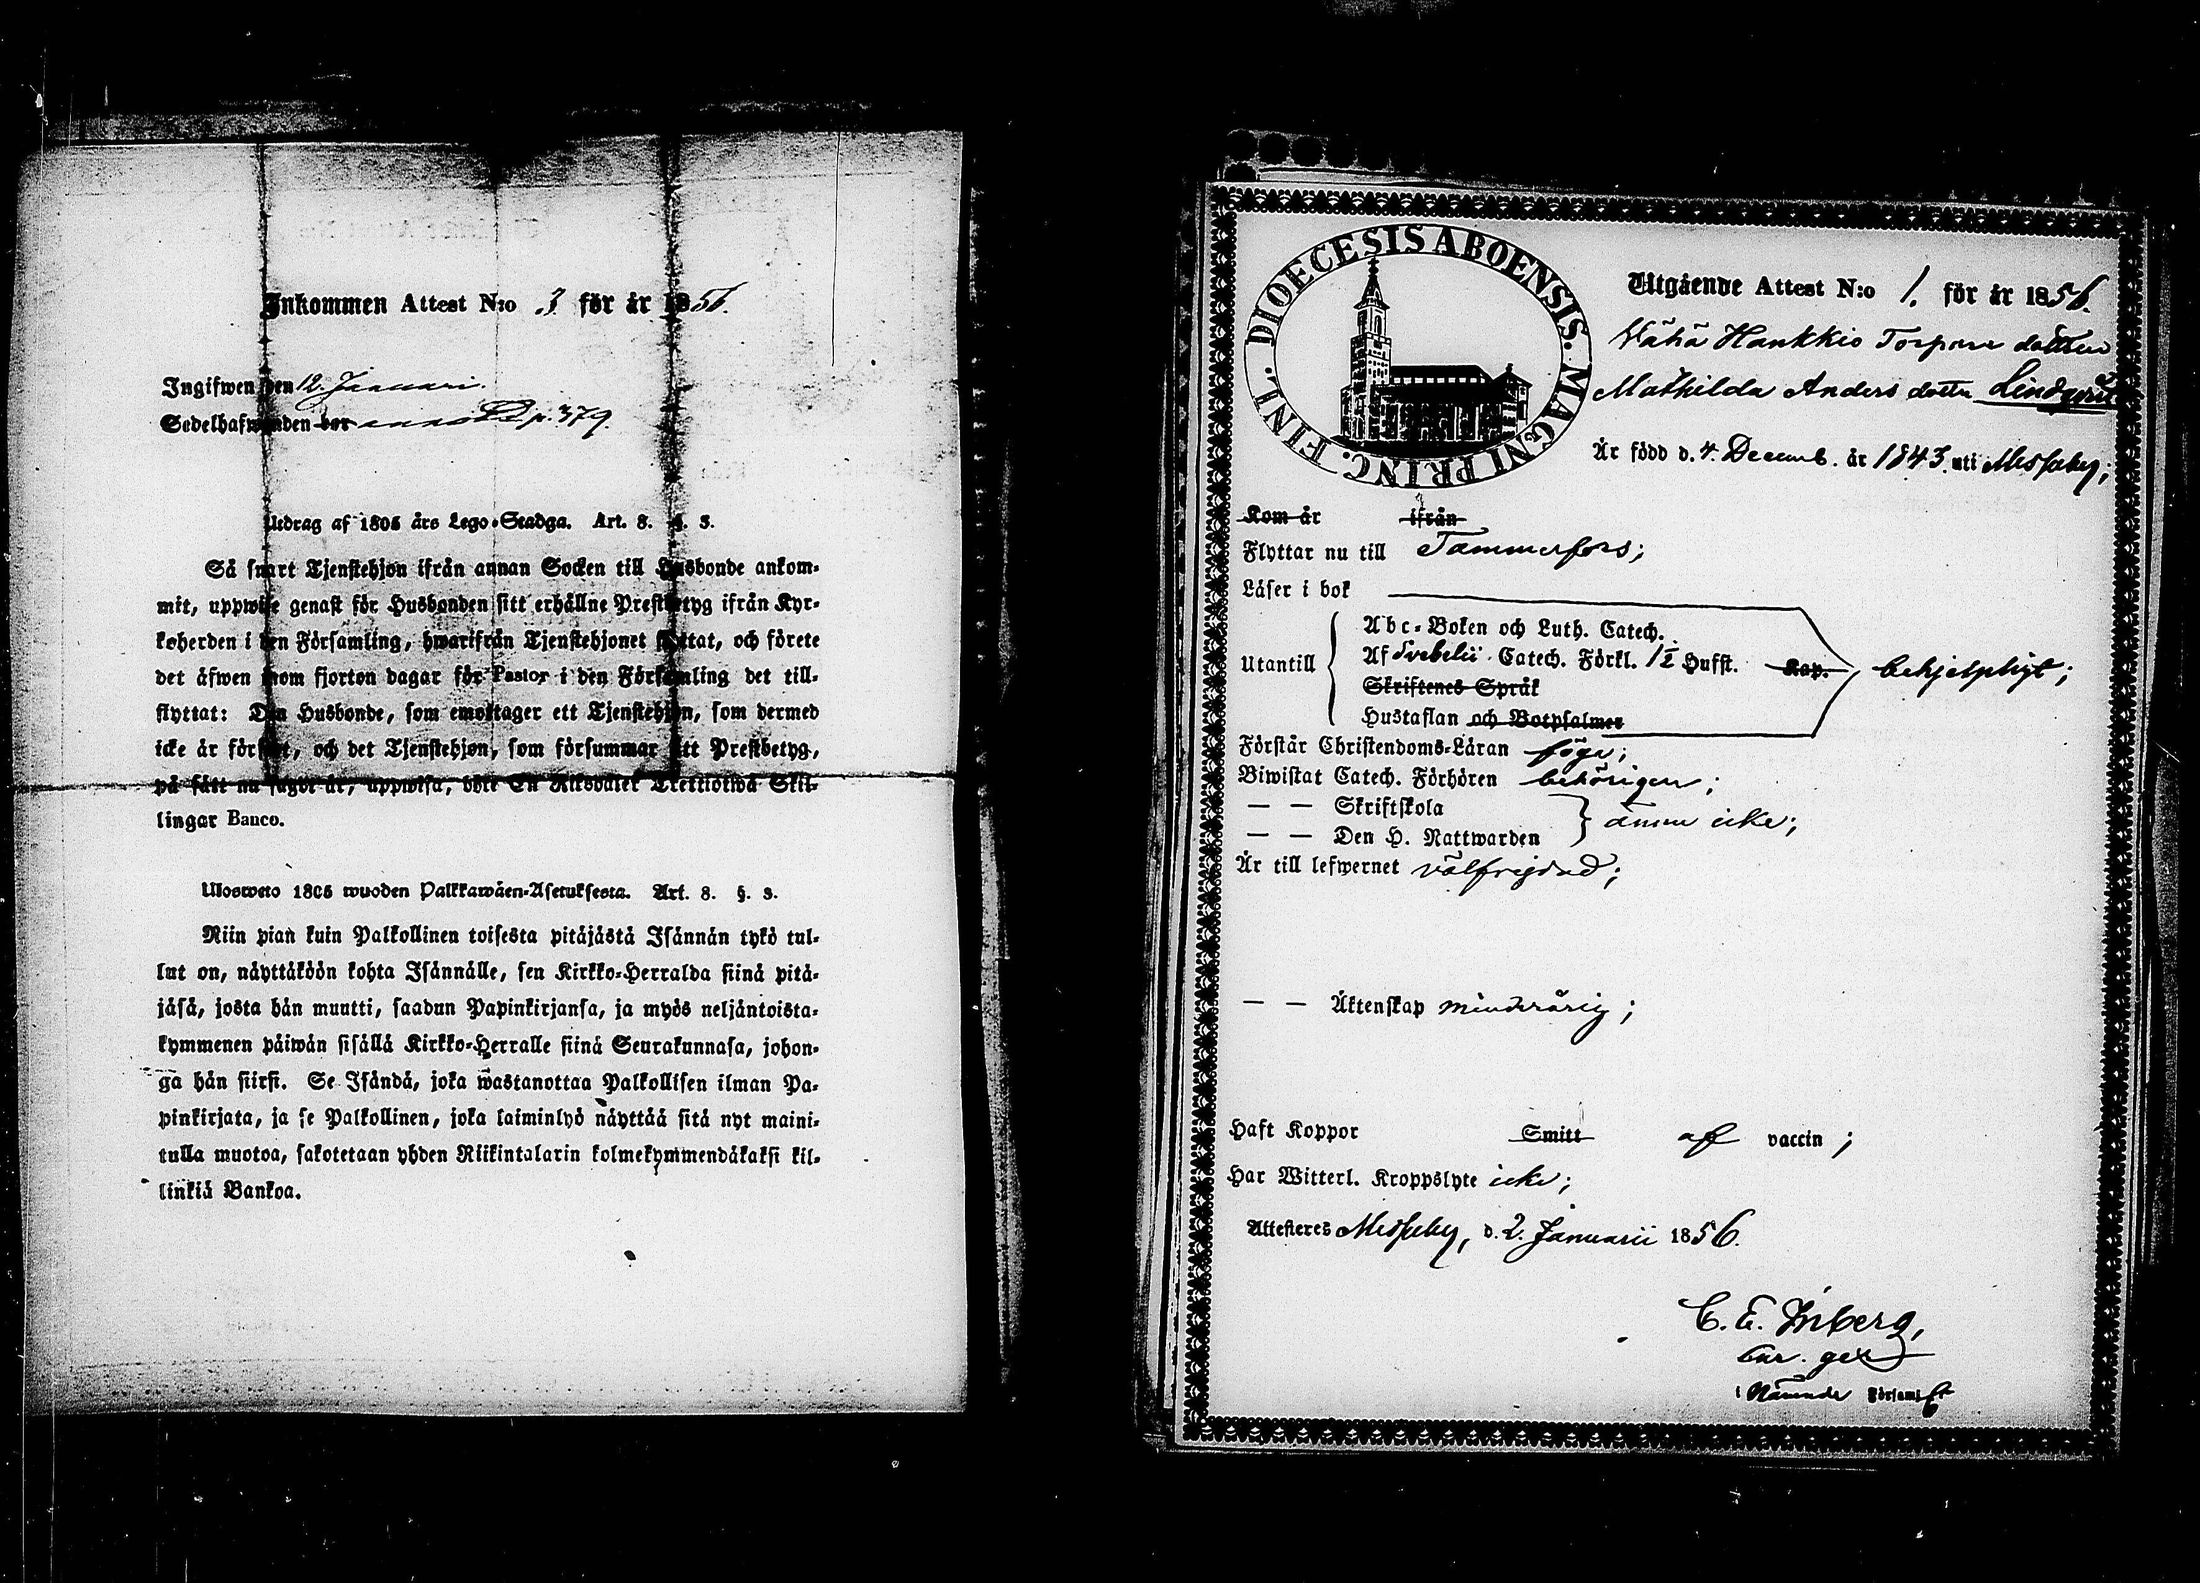 Inkommen Attest N:o 3 för år 1856.
Ingifwen den 12. Januari.
Sedelhafwanden bor p. 379.
Utdrag af 1805 års Lego-Stadga. Art. 8. §. 3.
Så snart Tjenstehjon ifrån annan Socken till Husbonde ankom-
mit, uppwise genast för Husbonden sitt erhållne Prestbetyg ifrån Kyr-
koherden i den Församling, hwarifrån Tjenstehjonet flyttat, och förete
det äfwen inom fjorton dagar för Pastor i den Församling det till-
flyttat: Den Husbonde, som emottager ett Tjenstehjon, som dermed
icke är försedt, och det Tjenstehjon, som försummar sitt Prestbetyg,
på sätt nu sagdt är, uppwisa, böte En Riksdaler Trettiotwå Skil-
lingar Banco.
Ulosweto 1805 wuoden Palkkawäen-Asetuksesta. Art. 8. §. 3.
Niin pian kuin Palkollinen toisesta pitäjästä Isännän tykö tul-
lut on, näyttäköön kohta Isännälle, sen Kirkko-Herralda siinä pitä-
jäsä, josta hän muutti, saadun Papinkirjansa, ja myös neljäntoista-
kymmenen päiwän sisällä Kirkko-Herralle siinä Seurakunnasa, johon-
ga hän siirsi. Se Isändä, joka wastanottaa Palkollisen ilman Pa-
pinkirjata, ja se Palkollinen, joka laiminlyö näyttää sitä nyt maini-
tulla muotoa, sakotetaan yhden Riikintalarin kolmekymmendäkaksi kil-
linkiä Bankoa.
DIOECESIS ABOENSIS. MAGNI PRINC. FINL.
Utgående Attest N:o 1. för år 1856.
Vähä Hankkio Torpare dottren
Mathilda Anders dotter Lindqvist
Är född d. 4. Decemb. år 1843. uti Messuby;
Kom år ifrån
Flyttar nu till Tammerfors;
Läser i bok
Utantill
Abc-Boken och Luth. Catech.
Af Svebelii Catech. Förkl. 1½ Hufst. Kap. behjelpligt;
Skriftenes Språk
Hustaflan och Botpsalmer
Förstår Christendoms-Läran föga;
Biwistat Catech. Förhören behörigen;
— — Skriftskola
— — Den H. Nattwarden ännu icke;
Är till lefwernet välfrejdad;
— — Äktenskap minderårig;
Haft Koppor Smitt af vaccin;
Har Witterl. Kroppslyte icke;
Attesteres Messuby, d. 2. Januarii 1856.
C. E. Inberg,
i Församl.